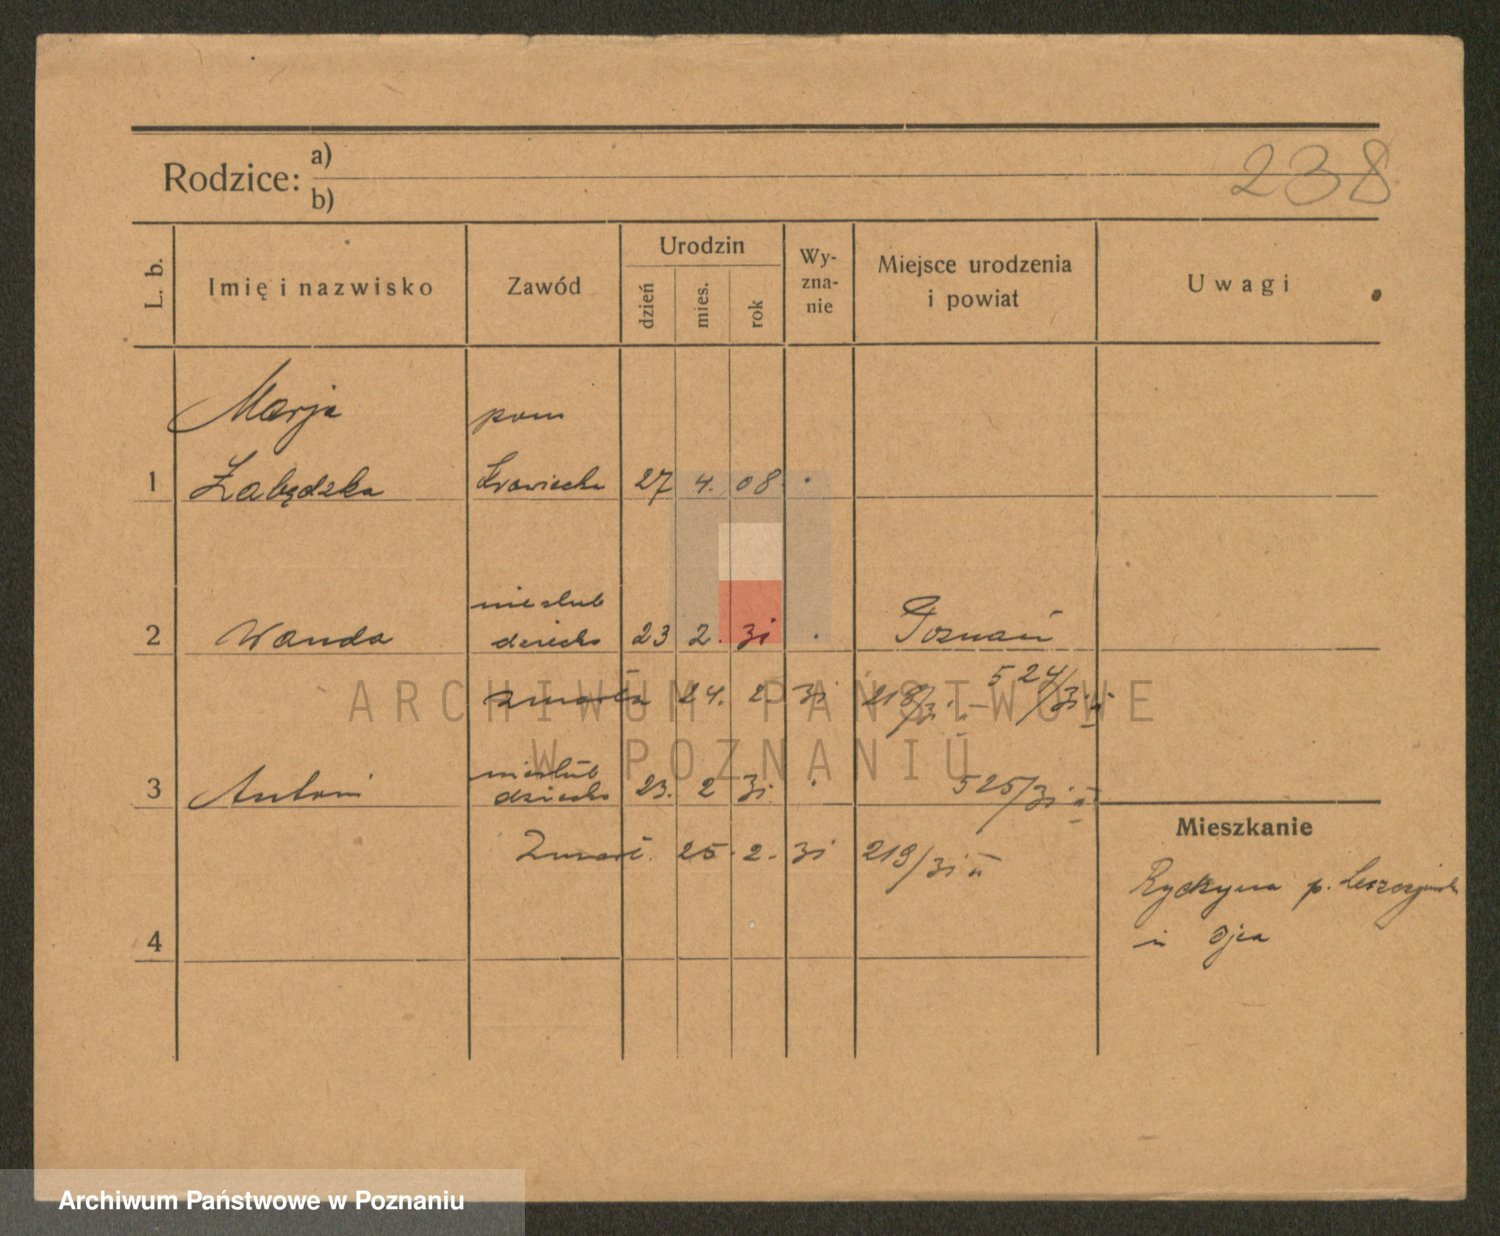 238
Rodzice: a)
b)
L. b.
Imię i nazwisko
Zawód
Urodzin
dzień
mies.
rok
Wy-
zna-
nie
Miejsce urodzenia
i powiat
Uwagi
Marja pom
1 Łabędzka 27 4. 08
nieślub
2 Wanda dziecko 23 2. 31 Poznań
zmarła 24. 2. 31 218/31 524/31
nieślub
3 Antoni dziecko 23. 2 31 525/31
Zmarł 25. 2. 31 219/31
Mieszkanie
p.
4
ARCHIWUM PAŃSTWOWE
W POZNANIU
Archiwum Państwowe w Poznaniu